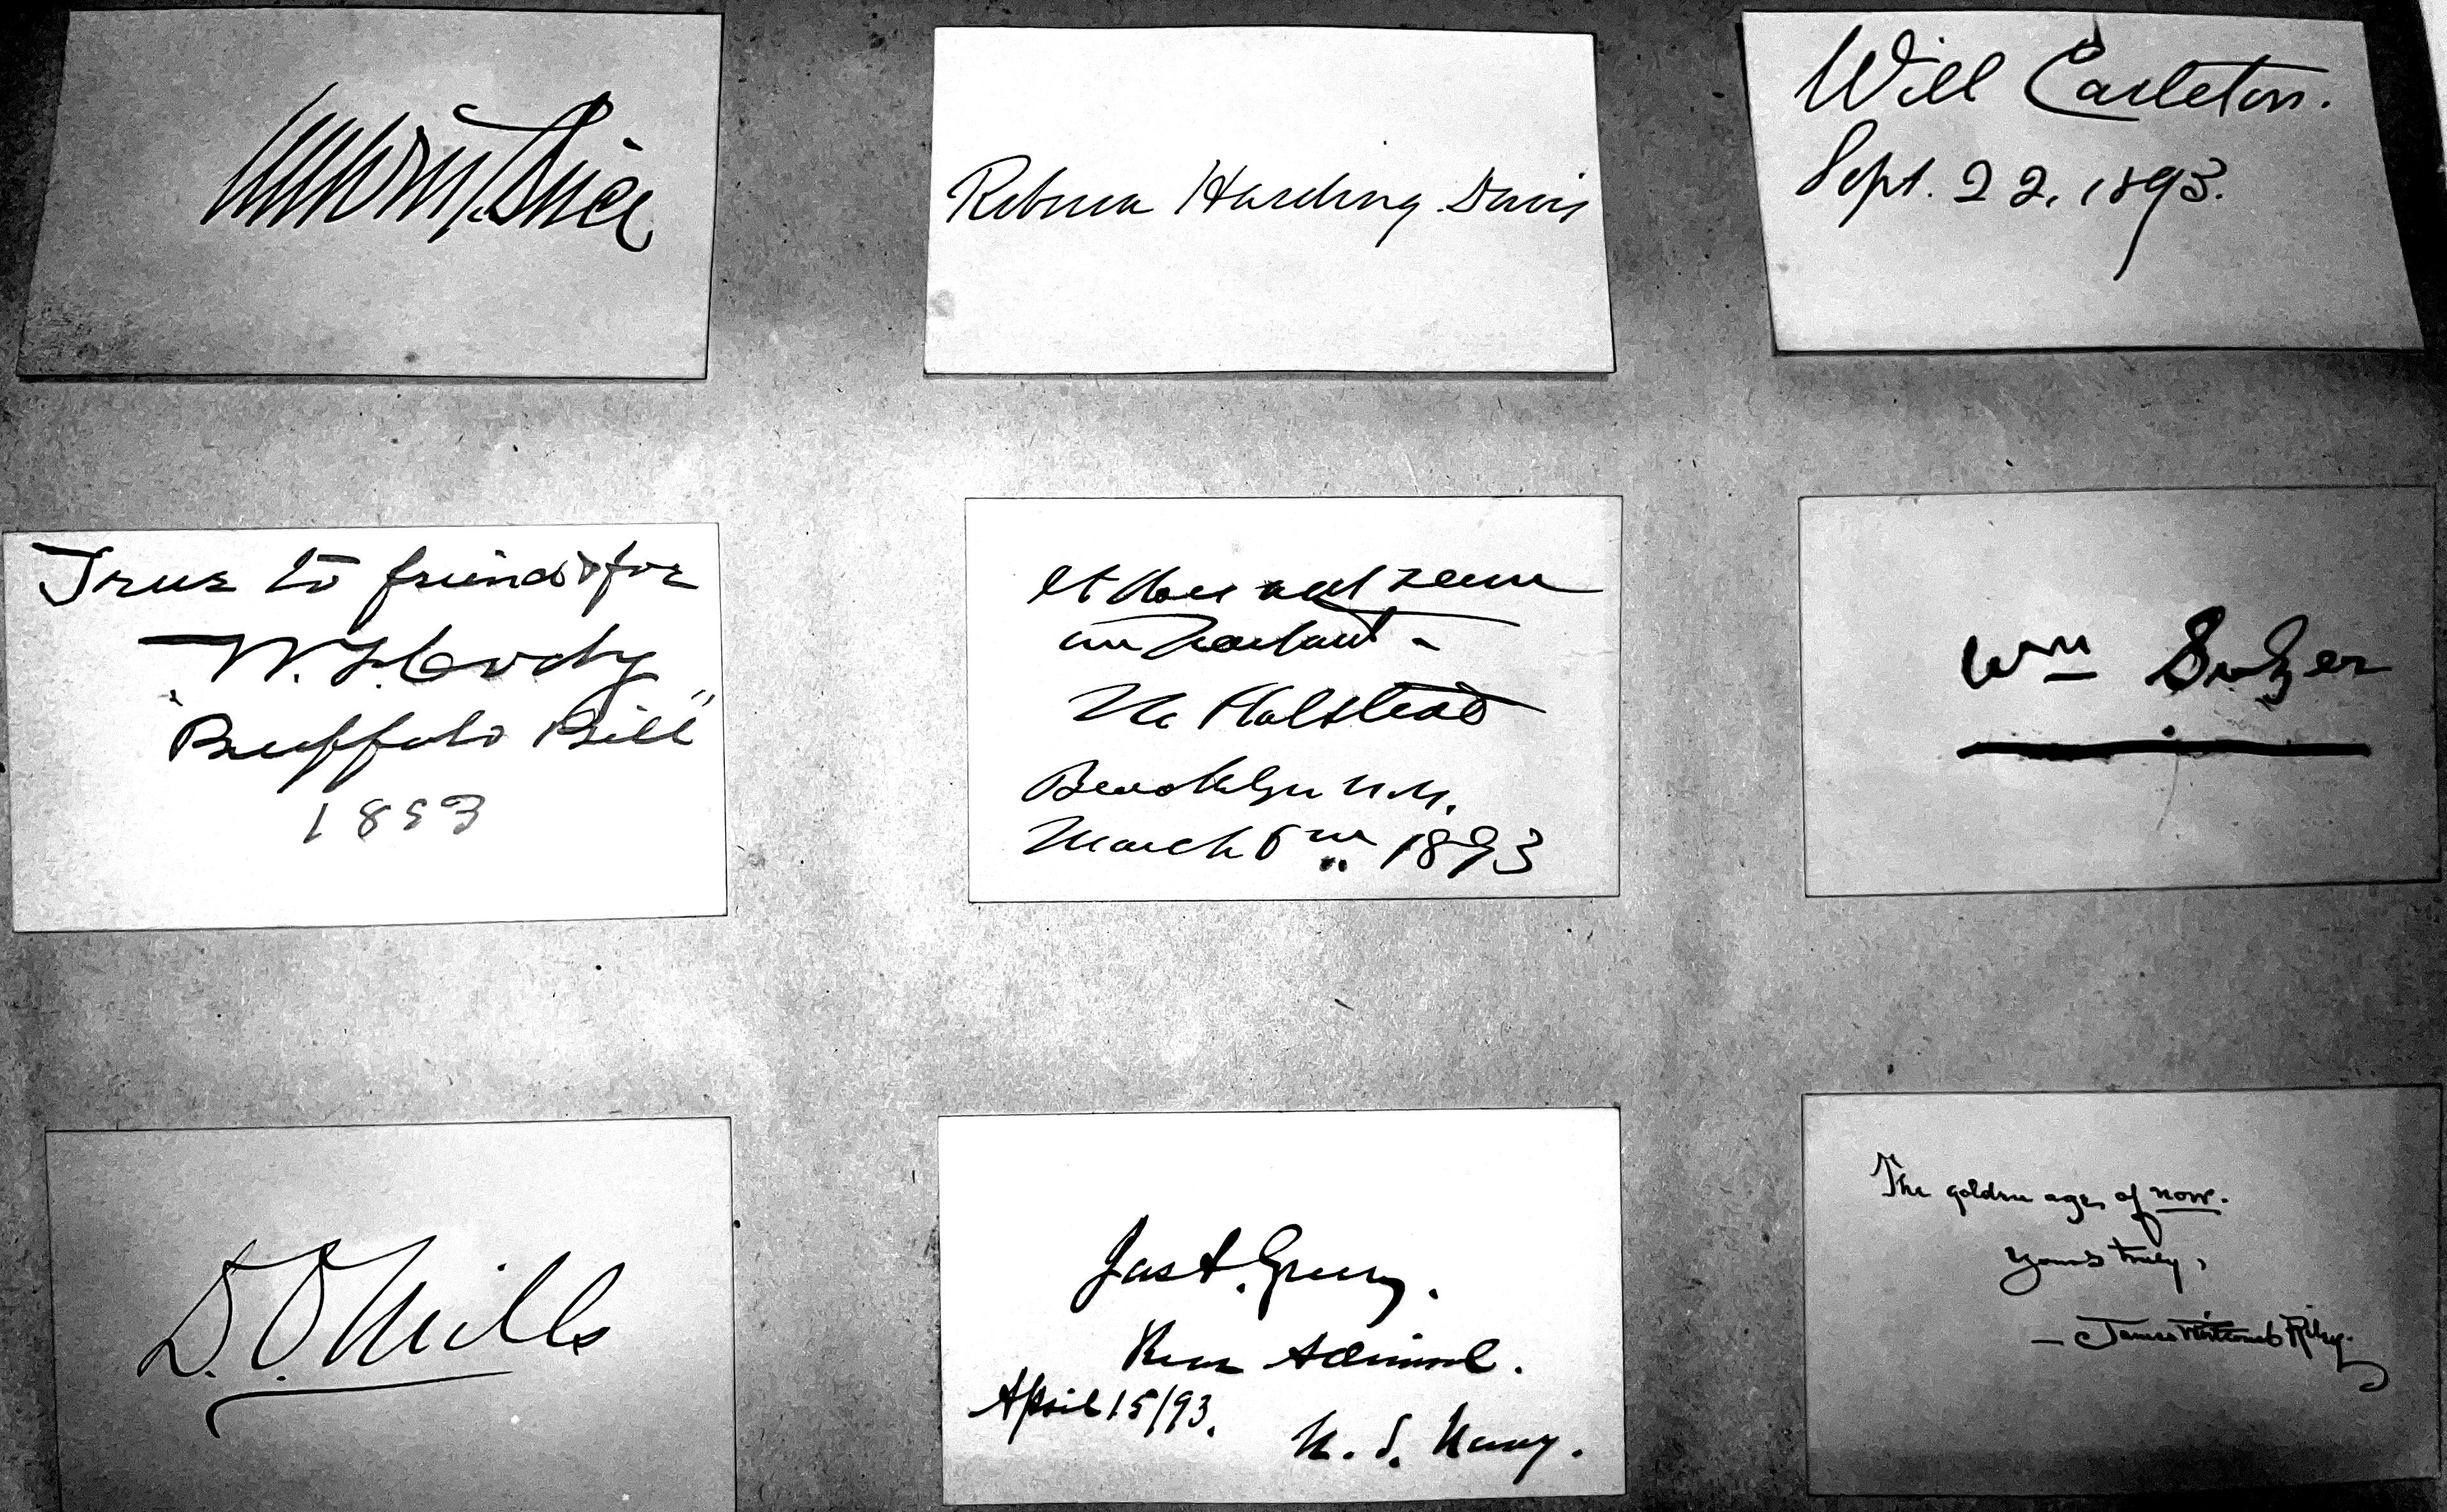 Rebecca Harding Davis
Will Carleton.
Sept. 22. 1893.
True to friend & foe
W. F. Cody
"Buffalo Bill"
1893
It does not seem
important -
M Halstead
Brooklyn N.Y.
March 6th 1893
Wm Sulzer
D. O. Mills
Jas A. Greer.
Rear Admiral.
April 15/93.
U. S. Navy.
The golden age, of now.
Yours truly,
— James Whitcomb Riley.